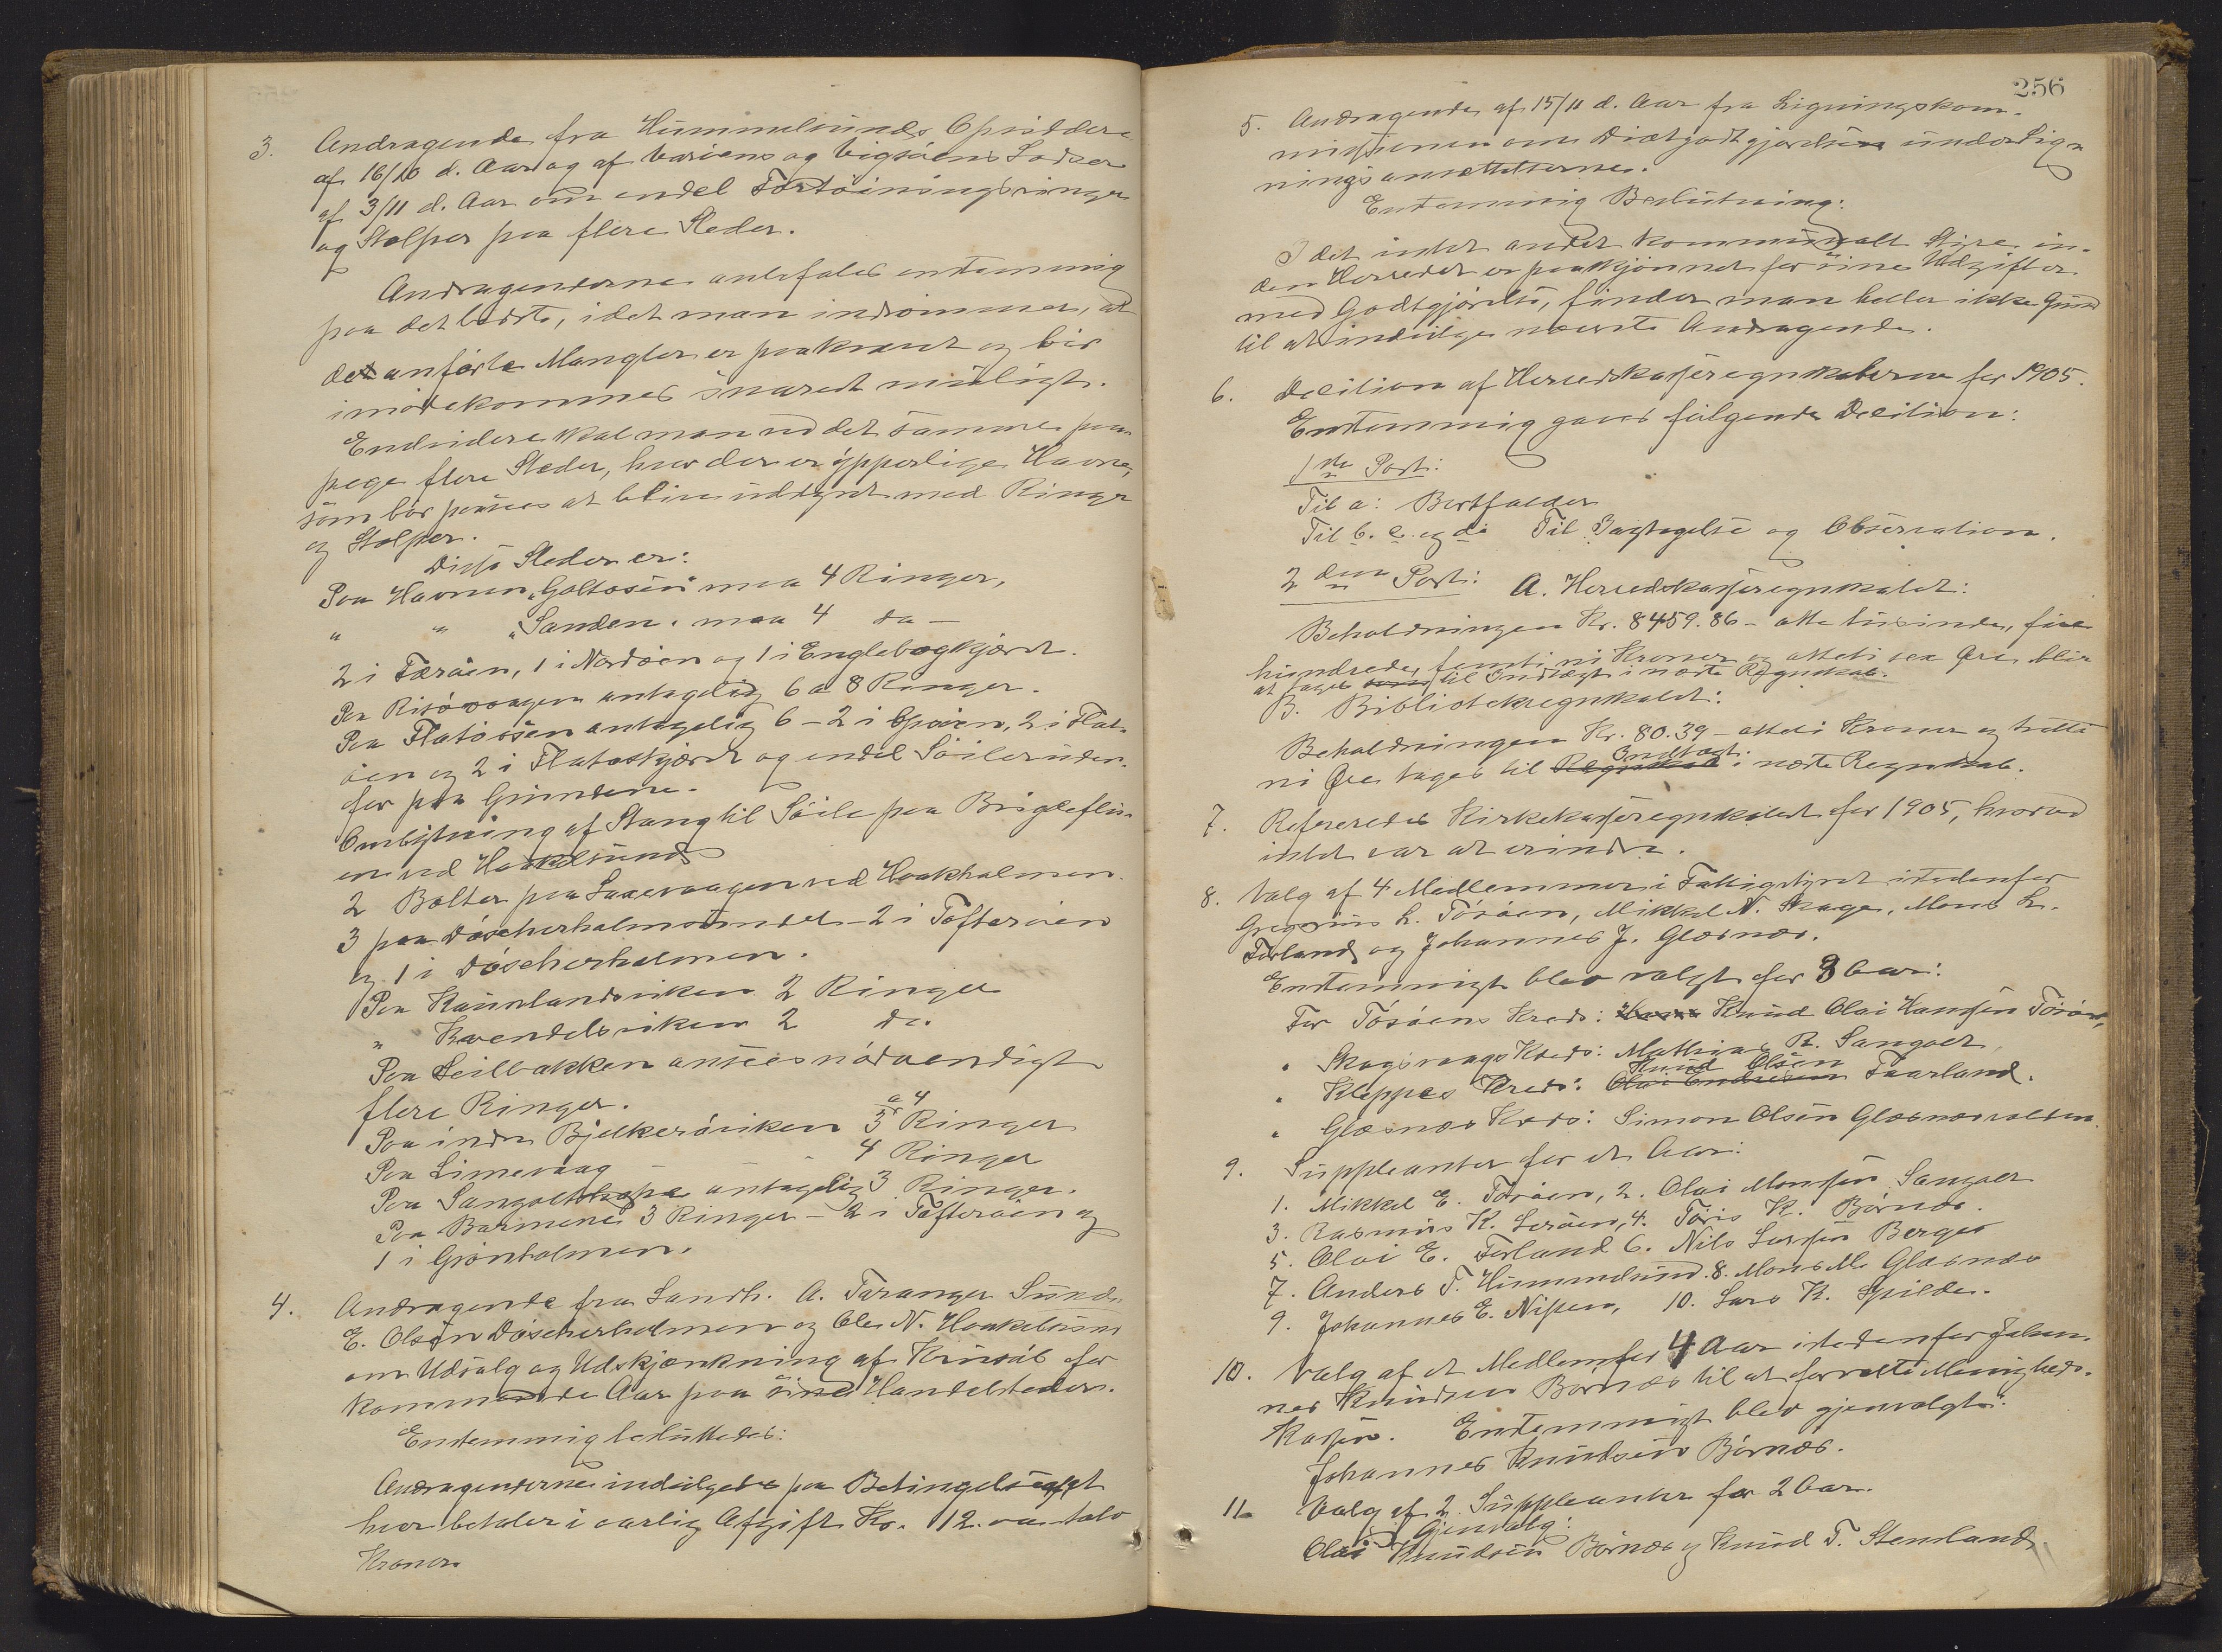 3. Andragende fra Hummelsunds Opsiddere
af 16/10 d. Aar og af Variens og Vigsöens Lodser
af 3/11 d. Aar om endel Fortöiningsringe
og Stolper paa flere Steder.
Andragenderne anbefales enstemmig
paa det bedste, idet man indrömmer, at
det anförte Mangler er paakrævet og bör
imödekommes snarest muligt.
Endvidere skal man ved det samme paa
pege flere Steder, hvor der er ypperlige Havne,
som bör paasees at blive udstyret med Ringe
og Stolper.
Disse Steder er:
Paa Havnen "Goltosen" maa 4 Ringer,
" " "Sanden" maa 4 do -
2 i Færöen, 1 i Nordöen og 1 i Englebogskjæret.
Paa Risövaagen antagelig 6 a 8 Ringer.
Paa Flatöosen antagelig 6 - 2 i Spöien, 2 i Flat-
öen og 2 i Flatøskjæret og endel Söiler uden-
for paa Grundene.
Ombytning af Stang til Söile paa Brigleflu-
en ved Haakelsund
2 Bolter paa Saaevaagen ved Haakholmen.
3 paa Döscherholmsundet - 2 i Tofteröen
og 1 i Döscherholmen.
Paa Kaurlandsviken 2 Ringe
" Kvendelsviken 2 do.
Paa Seilbakken ansees nödvendigt
flere Ringer.
Paa indre Bjelkeröviken 3 a 4 Ringer
Paa Limevaag - - 4 Ringer
Paa Sangolt antagelig 3 Ringer.
Paa Barmene 3 Ringer - 2 i Tofteröen og
1 i Grönholmen.
4. Andragende fra Landh. A. Taranger Sund,
E. Olsen Döscherholmen og Ole N. Haakelsund
om Udsalg og Udskjænkning af Krusöl for
kommende Aar paa sine Handelsteder.
Enstemmig besluttedes:
Andragenderne indvilgedes paa Betingelse af at
hver betaler i aarlig Afgift Kr. 12. - tolv
Kroner
256
5. Andragende af 15/11 d. Aar fra Ligningskom-
missionen om Diætgodtgjørelse under Lig-
ningsansættelserne.
Enstemmig Beslutning:
I det intet andet kommunalt Styre in-
den Herredet er paaskjönnet for sine Udgifter
med Godtgjörelse, finder man heller ikke Grund
til at indvilge nævnte Andragende.
6. Decition af Herredskasseregnskaberne for 1905.
Enstemmig gaves fölgende Decition:
1ste Post:
Til a: Bortfalder
Til b. c. og d: Til Iagtagelse og Observation.
2den Post: A. Herredskasseregnskabet:
Beholdningen Kr. 8459.86 - otte tusinde, fire
hundrede, femti ni Kroner og otteti sex Øre blir
at tages til Indtægt i næste Regnskab.
B. Biblioteksregnskabet:
Beholdningen Kr. 80.39 - otteti Kroner og tretti
ni Øre tages til Indtægt i næste Regnskab.
7. Refereredes Kirkekasseregnskabet for 1905, hvorved
intet var at erindre.
8. Valg af 4 Medlemmer i Fattigstyret istedenfor
Gregorius L. Tösöen, Mikkel N. Skage, Mons L.
Forland og Johannes J. Glæsnæs.
Enstemmigt blev valgt for 3 Aar:
For Tösöens Kreds: Knud Olai Hansen Tösöen,
" Skogsvaags Kreds: Mathias R. Sangolt
" Kleppes Kreds: Knud Olsen Faarland.
" Glæsnæs Kreds: Simon Olsen Glæsnæsvalen.
9. Suppleanter for et Aar:
1. Mikkel E. Tösöen, 2. Olai Monsen Sangolt
3. Rasmus K. Leröen, 4. Töris K. Börnæs.
5. Olai E. Forland 6. Nils Larsen Berge
7. Anders T. Hummelsund. 8. Mons M. Glæsnæs
9. Johannes E. Nipen, 10. Lars K. Spilde.
10. Valg af et Medlem for 4 Aar istedenfor Johan-
nes Knudsen Börnæs til at forrette Menigheds-
Kassen. Enstemmigt blev gjenvalgt:
Johannes Knudsen Börnæs.
11. Valg af 2 Suppleanter for 2 Aar.
Gjenvalg:
Olai Knudsen Börnæs og Knud T. Stenland